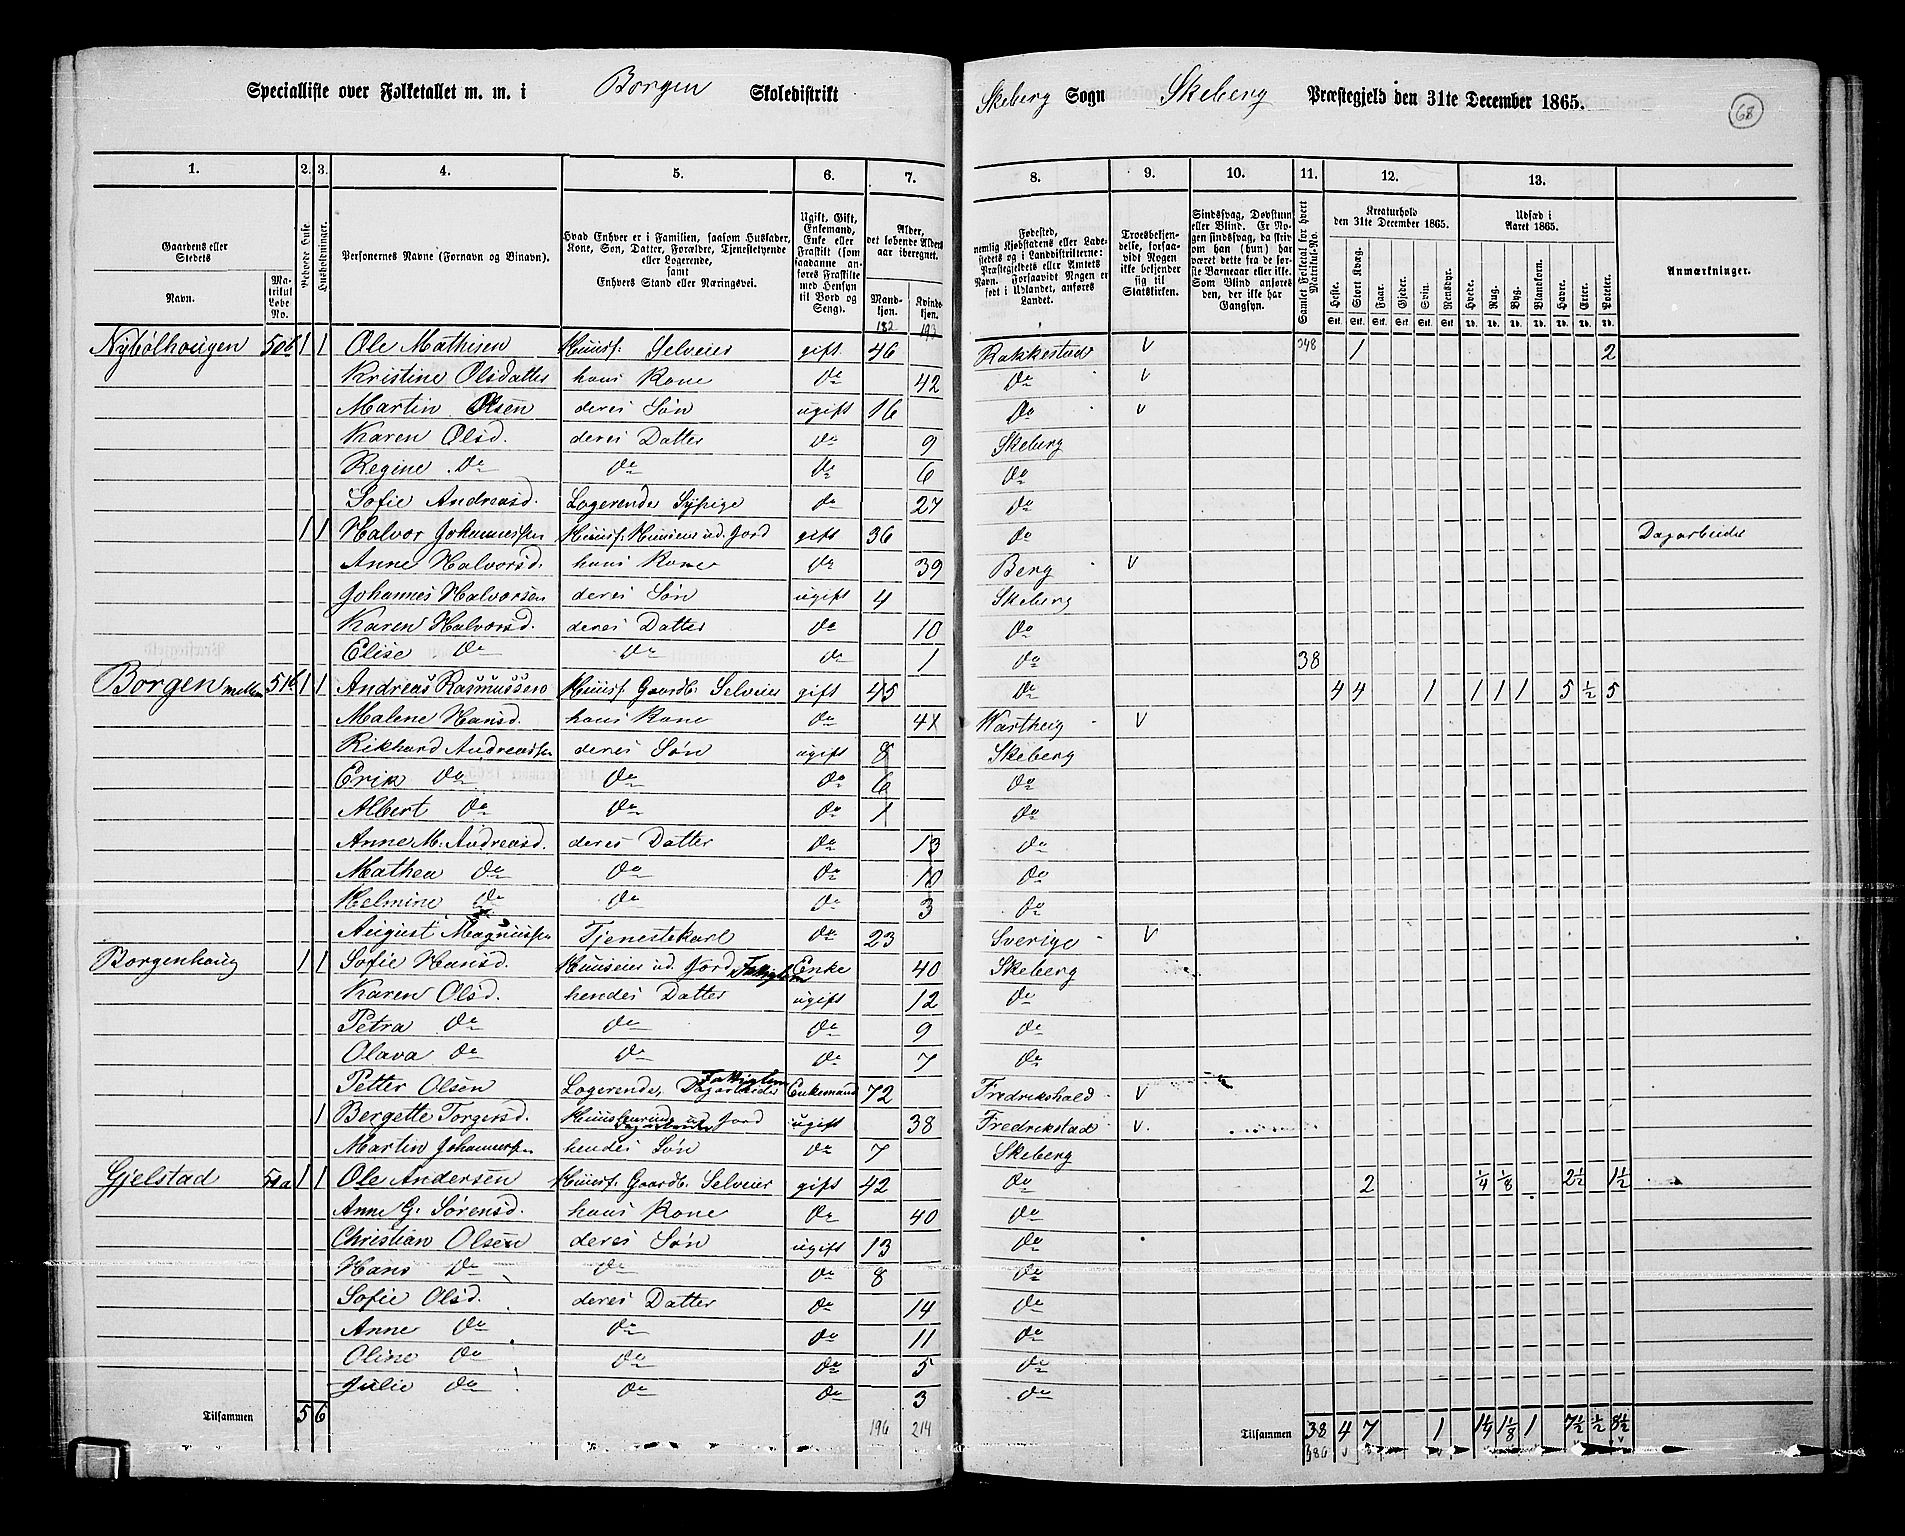 Specialliste over Folketallet m. m. i Borgen Skoledistrikt Skeberg Sogn Skeberg Præstegjeld den 31te December 1865.
68
1. 2. 3. 4. 5. 6. 7. 8. 9. 10. 11. 12. 13.
Gaardens eller Stedets Navn. Matrikul Løbe No. Beboede Huse. Husholdninger. Personernes Navne (Fornavn og Binavn). Hvad Enhver er i Familien, saasom Husfader, Kone, Søn, Datter, Forældre, Tjenestetyende eller Logerende, samt Enhvers Stand eller Næringsvei. Ugift, Gift, Enkemand, Enke eller Fraskilt (som saadanne anføres Fraskilte med Hensyn til Bord og Seng). Alder, det løbende Aldersaar iberegnet. Mandkjøn. Kvindekjøn. Fødested, nemlig Kjøbstadens eller Ladestedets og i Landdistrikterne: Præstegjeldets eller Amtets Navn. Forsaavidt Nogen er født i Udlandet, anføres Landet. Troesbekjendelse, forsaavidt Nogen ikke bekjender sig til Statskirken. Sindssvag, Døvstum eller Blind. Er Nogen sindssvag, da skrives om han (hun) har været dette fra de første Barneaar eller ikke. Som Blind anføres den, der ikke har Gangsyn. Samlet Folketal for hvert Matrikuls-No. Kreaturhold den 31te December 1865. Udsæd i Aaret 1865. Anmærkninger.
Heste. Stort Kvæg. Faar. Gjeder. Svin. Rensdyr. Hvede. Rug. Byg. Blandkorn. Havre. Erter. Poteter.
182 193
Nybølhougen 50b 1 1 Ole Mathisen Huusf: Selveier gift 46 Rakkestad v 348 1 2
Kristine Olsdatter hans Kone do 42 do v
Martin Olsen deres Søn ugift 16 do v
Karen Olsd. deres Datter do 9 Skeberg
Regine do do do 6 do
Sofie Andreasd. Logerende Sypige do 27 do
1 1 Halvor Johannessen Huusf: Huusleier ud. Jord gift 36 do Dagarbeider
Anne Halvorsd. hans Kone do 39 Berg v
Johannes Halvorsen deres Søn ugift 4 Skeberg
Karen Halvorsd. deres Datter do 10 do
Elise do do do 1 do 38
Borgen mellem 51b 1 1 Andreas Rasmussen Huusf. Gaardb: Selveier gift 45 do 4 4 1 1 1 1 5 ½ 5
Malene Hansd. hans Kone do 41 Warteig v
Rikhard Andreassen deres Søn ugift 8 Skeberg
Erik do do do 6 do
Albert do do do 1 do
Anne M. Andreasd. deres Datter do 13 do
Mathea do do do 10 do
Helmine do do do 3 do
August Magnussen Tjenestekarl do 23 Sverige v
Borgenhaug 1 1 Sofie Hansd. Huuseier ud. Jord Fattiglem Enke 40 Skeberg
Karen Olsd. hendes Datter ugift 12 do
Petra do do do 9 do
Olava do do do 7 do
Petter Olsen Logerende, Dagarbeider Fattiglem Enkemand 72 Fredrikshald v
1 Bergette Torgersd. ud Jord ugift 38 Fredrikstad v
Martin Johannessen hendes Søn do 7 Skeberg
Gjelstad 1 1 Ole Andersen Huusf. Gaardb. Selveier gift 42 do 2 ¼ ⅛ 2½ 1½
Anne G. Sørensd. hans Kone do 40 do
Christian Olsen deres Søn ugift 13 do
Hans do do do 8 do
Sofie Olsd. deres Datter do 14 do
Anne do do do 11 do
Oline do do do 5 do
Julie do do do 3 do
Tilsammen 5 6 196 214 Tilsammen 38 4 7 1 1¼ 1⅛ 1 7½ ½ 8½
386